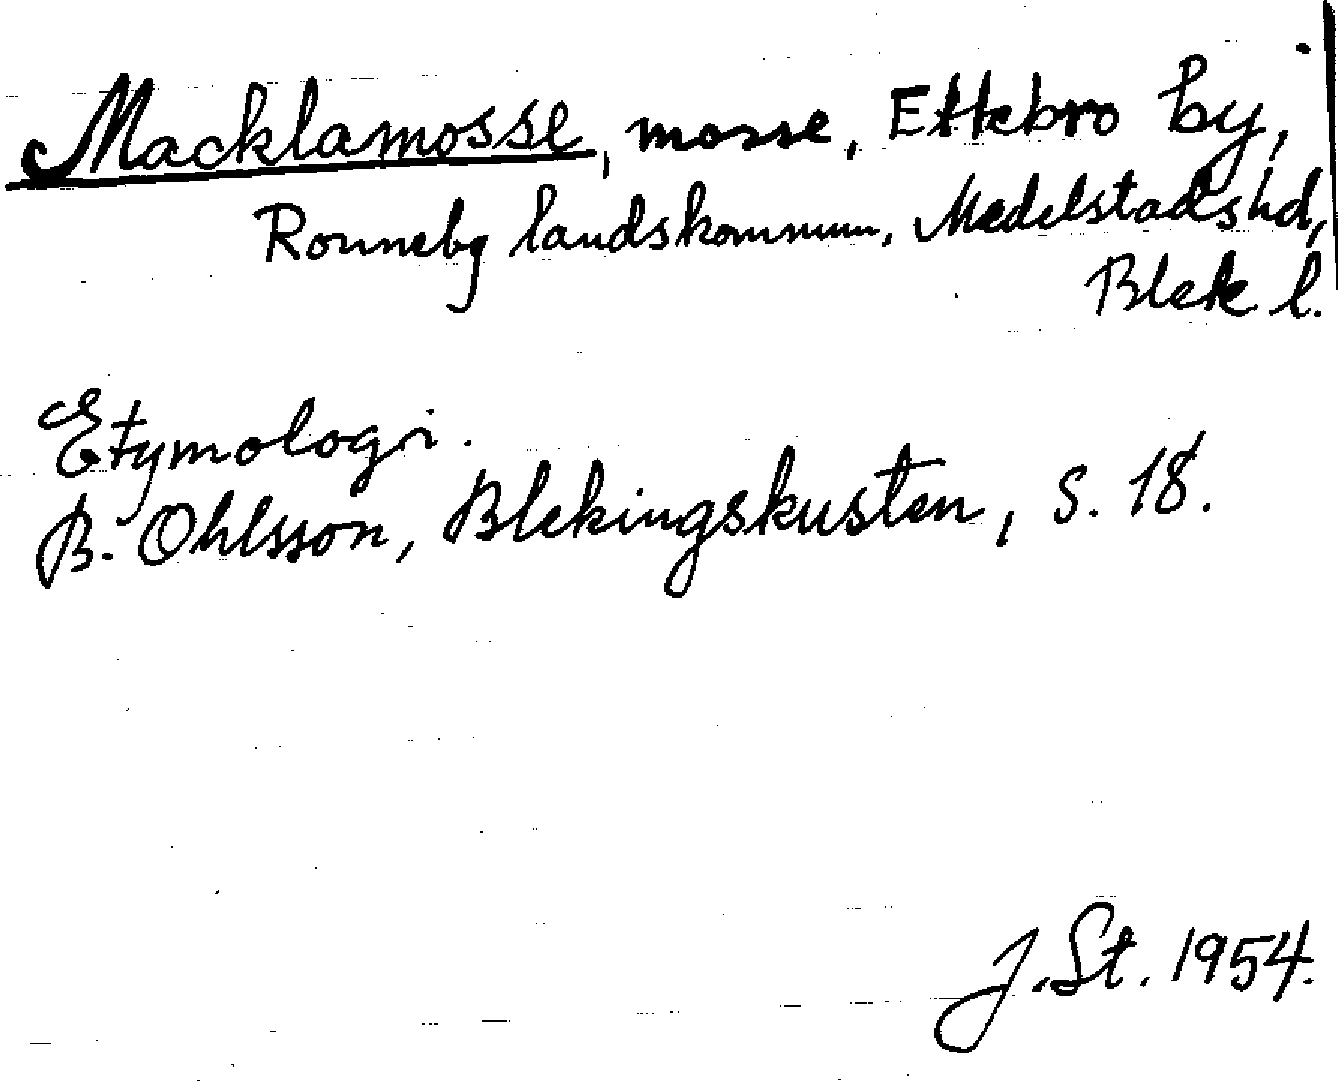 Macklamosse, mosse, Ettebro by,
Ronneby landskommun, Medelstads hd,
Blek. l.
Etymologi.
B. Ohlsson, Blekingskusten, s. 18.
J. St. 1954.